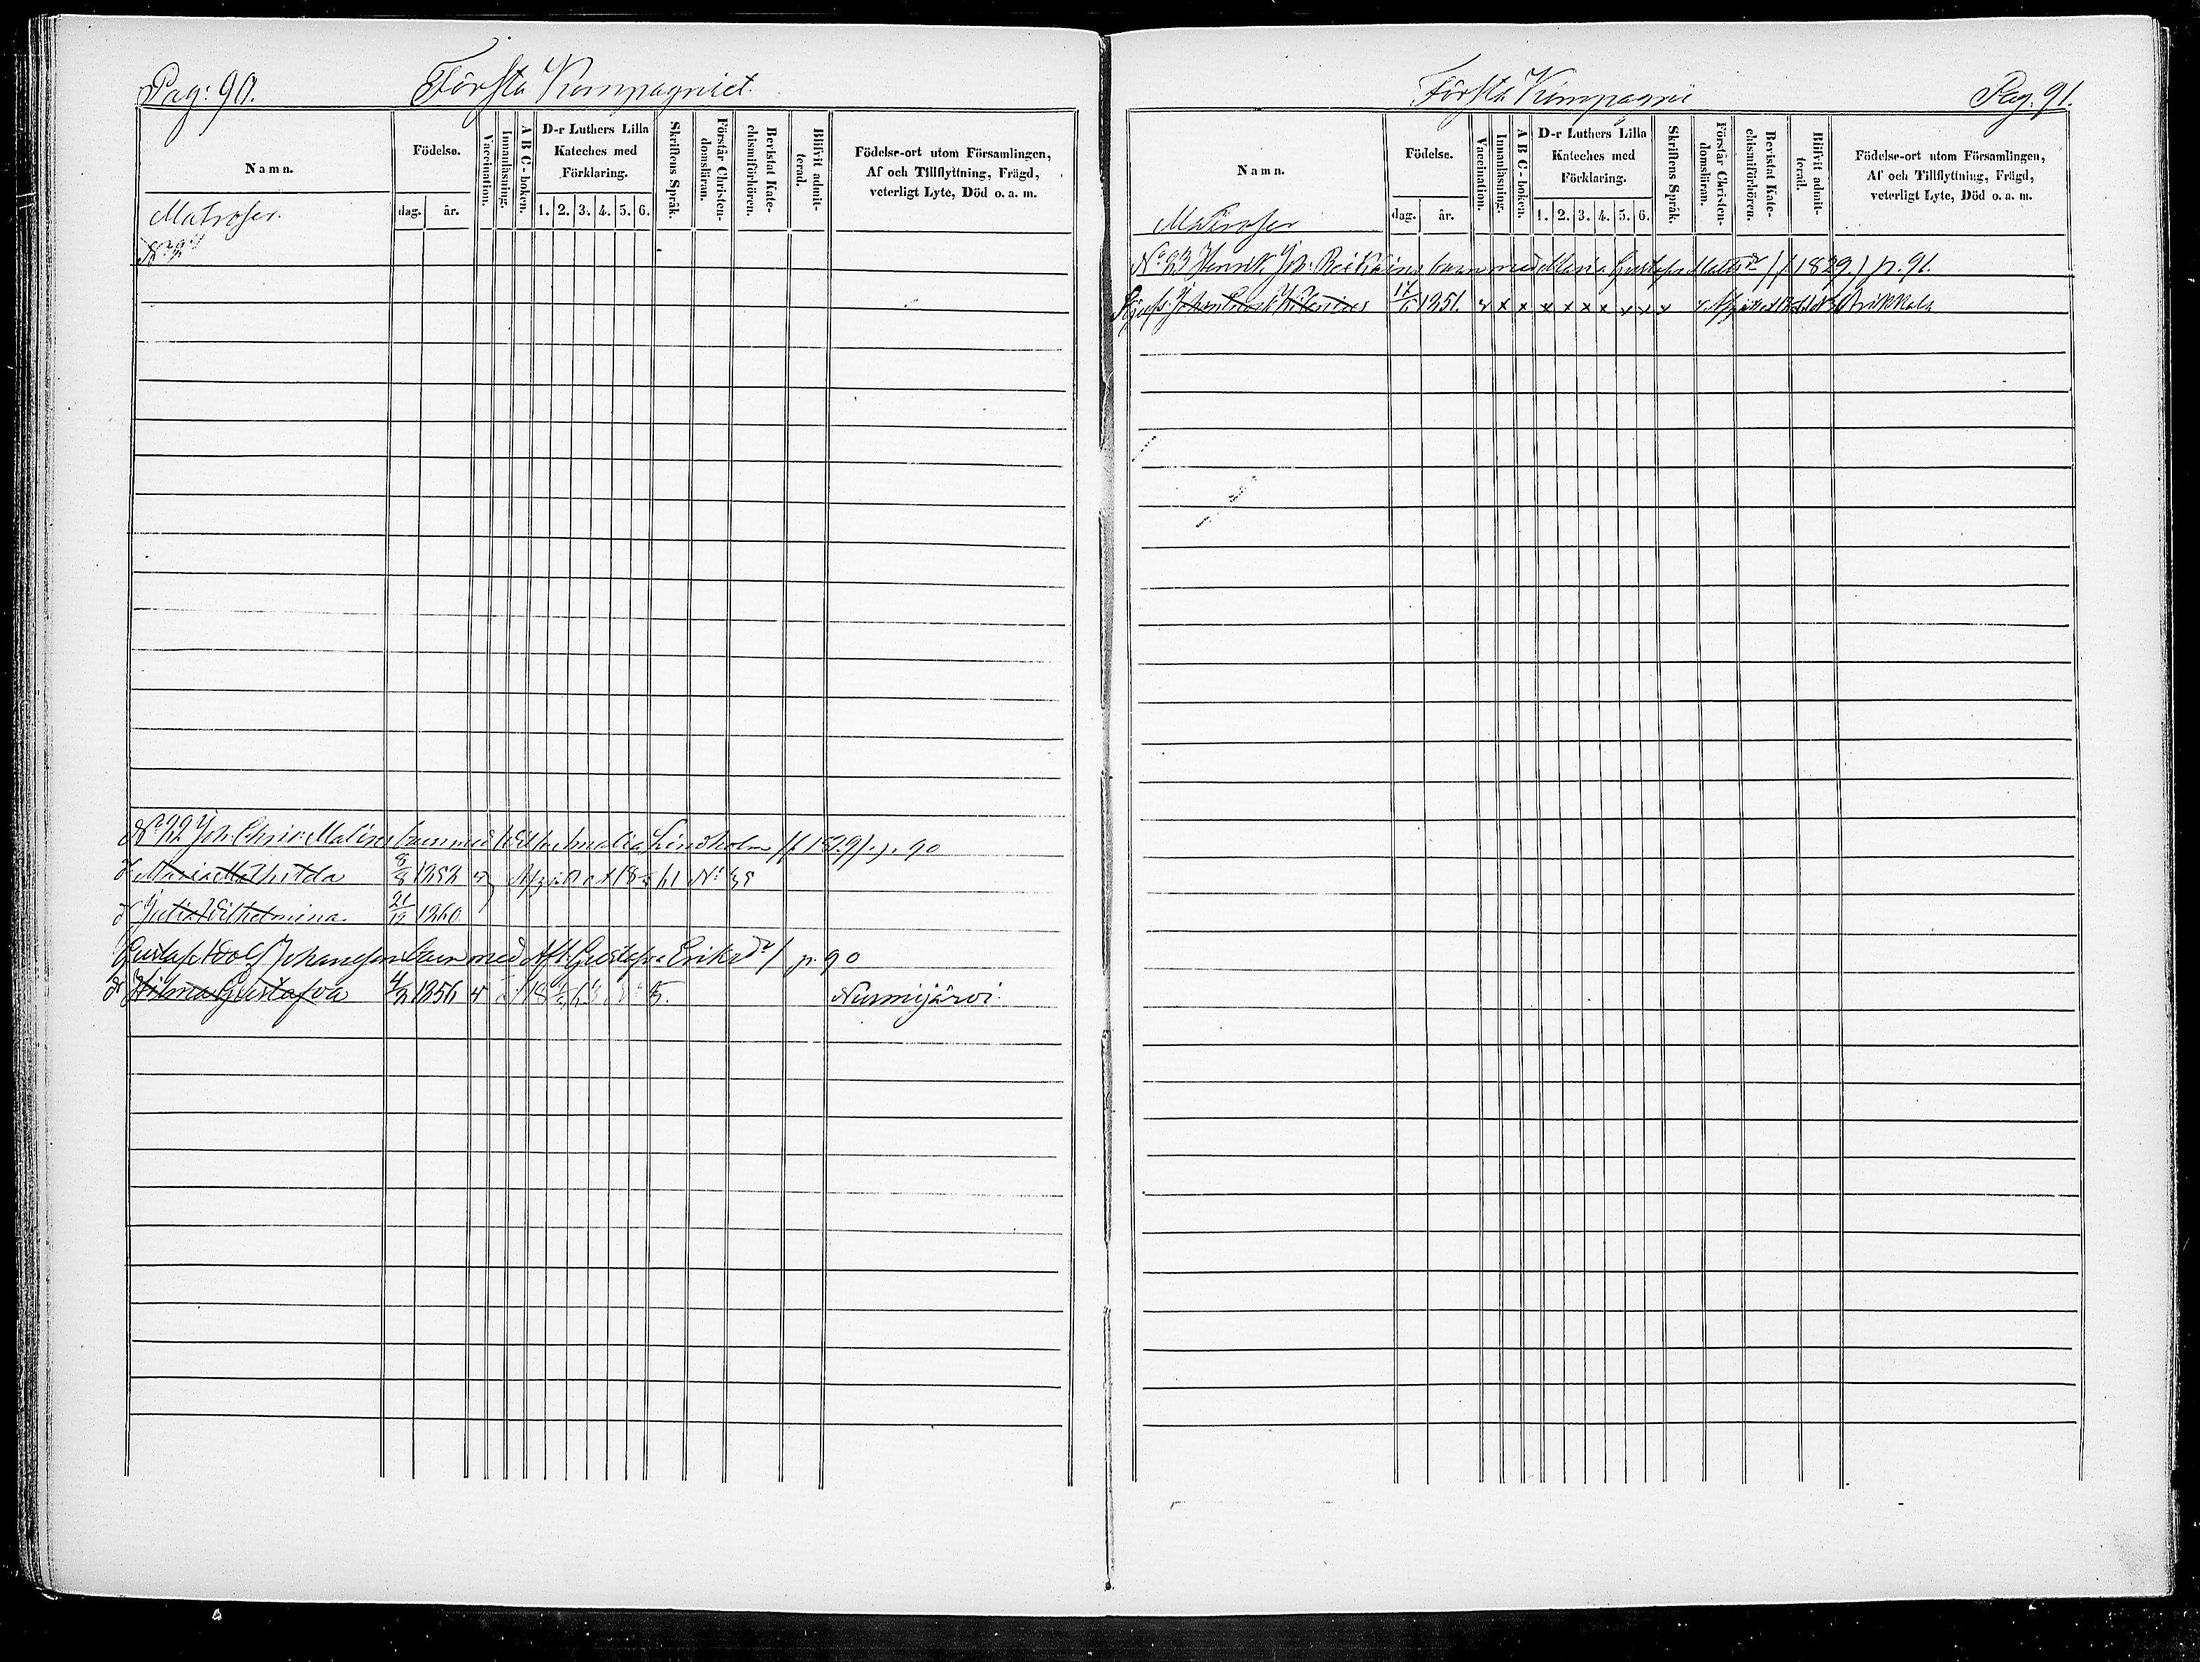 Pag: 90. Första Kompagniet.
Namn.
Födelse.
dag. år.
Vaccination.
Innanläsning.
A B C - boken.
D-r Luthers Lilla
Kateches med
Förklaring.
1. 2. 3. 4. 5. 6.
Skriftens Språk.
Förstår Christen-
domsläran.
Bevistat Kate-
chismiförhören.
Blifvit admit-
terad.
Födelse-ort utom Församlingen,
Af och Tillflyttning, Frägd,
veterligt Lyte, Död o. a. m.
Matroser.
N:o 21
N:o 22 Joh. Chris: Malires barn med Vilh: Amalia Lindholm /f 1829/ p. 90
d Maria Mathilda 8/8 1852 v Afgått 18 61 N:o
d Julia Wilhelmina 21/12 1860
Gustaf Adolf Johansson barn med Gustafva Eriksdr / p. 90
dr Hilma Gustafva 4/2 1856 v Nurmijärvi.
Första Kompagnie Pag. 91.
Namn.
Födelse.
dag. år.
Vaccination.
Innanläsning.
A B C - boken.
D-r Luthers Lilla
Kateches med
Förklaring.
1. 2. 3. 4. 5. 6.
Skriftens Språk.
Förstår Christen-
domsläran.
Bevistat Kate-
chismiförhören.
Blifvit admit-
terad.
Födelse-ort utom Församlingen,
Af och Tillflyttning, Frägd,
veterligt Lyte, Död o. a. m.
Matroser
N:o 23 Henrik Joh: barn med Maria Gustafva /f 1829/ p. 91.
Johan 1851. v x x x x x x x x x